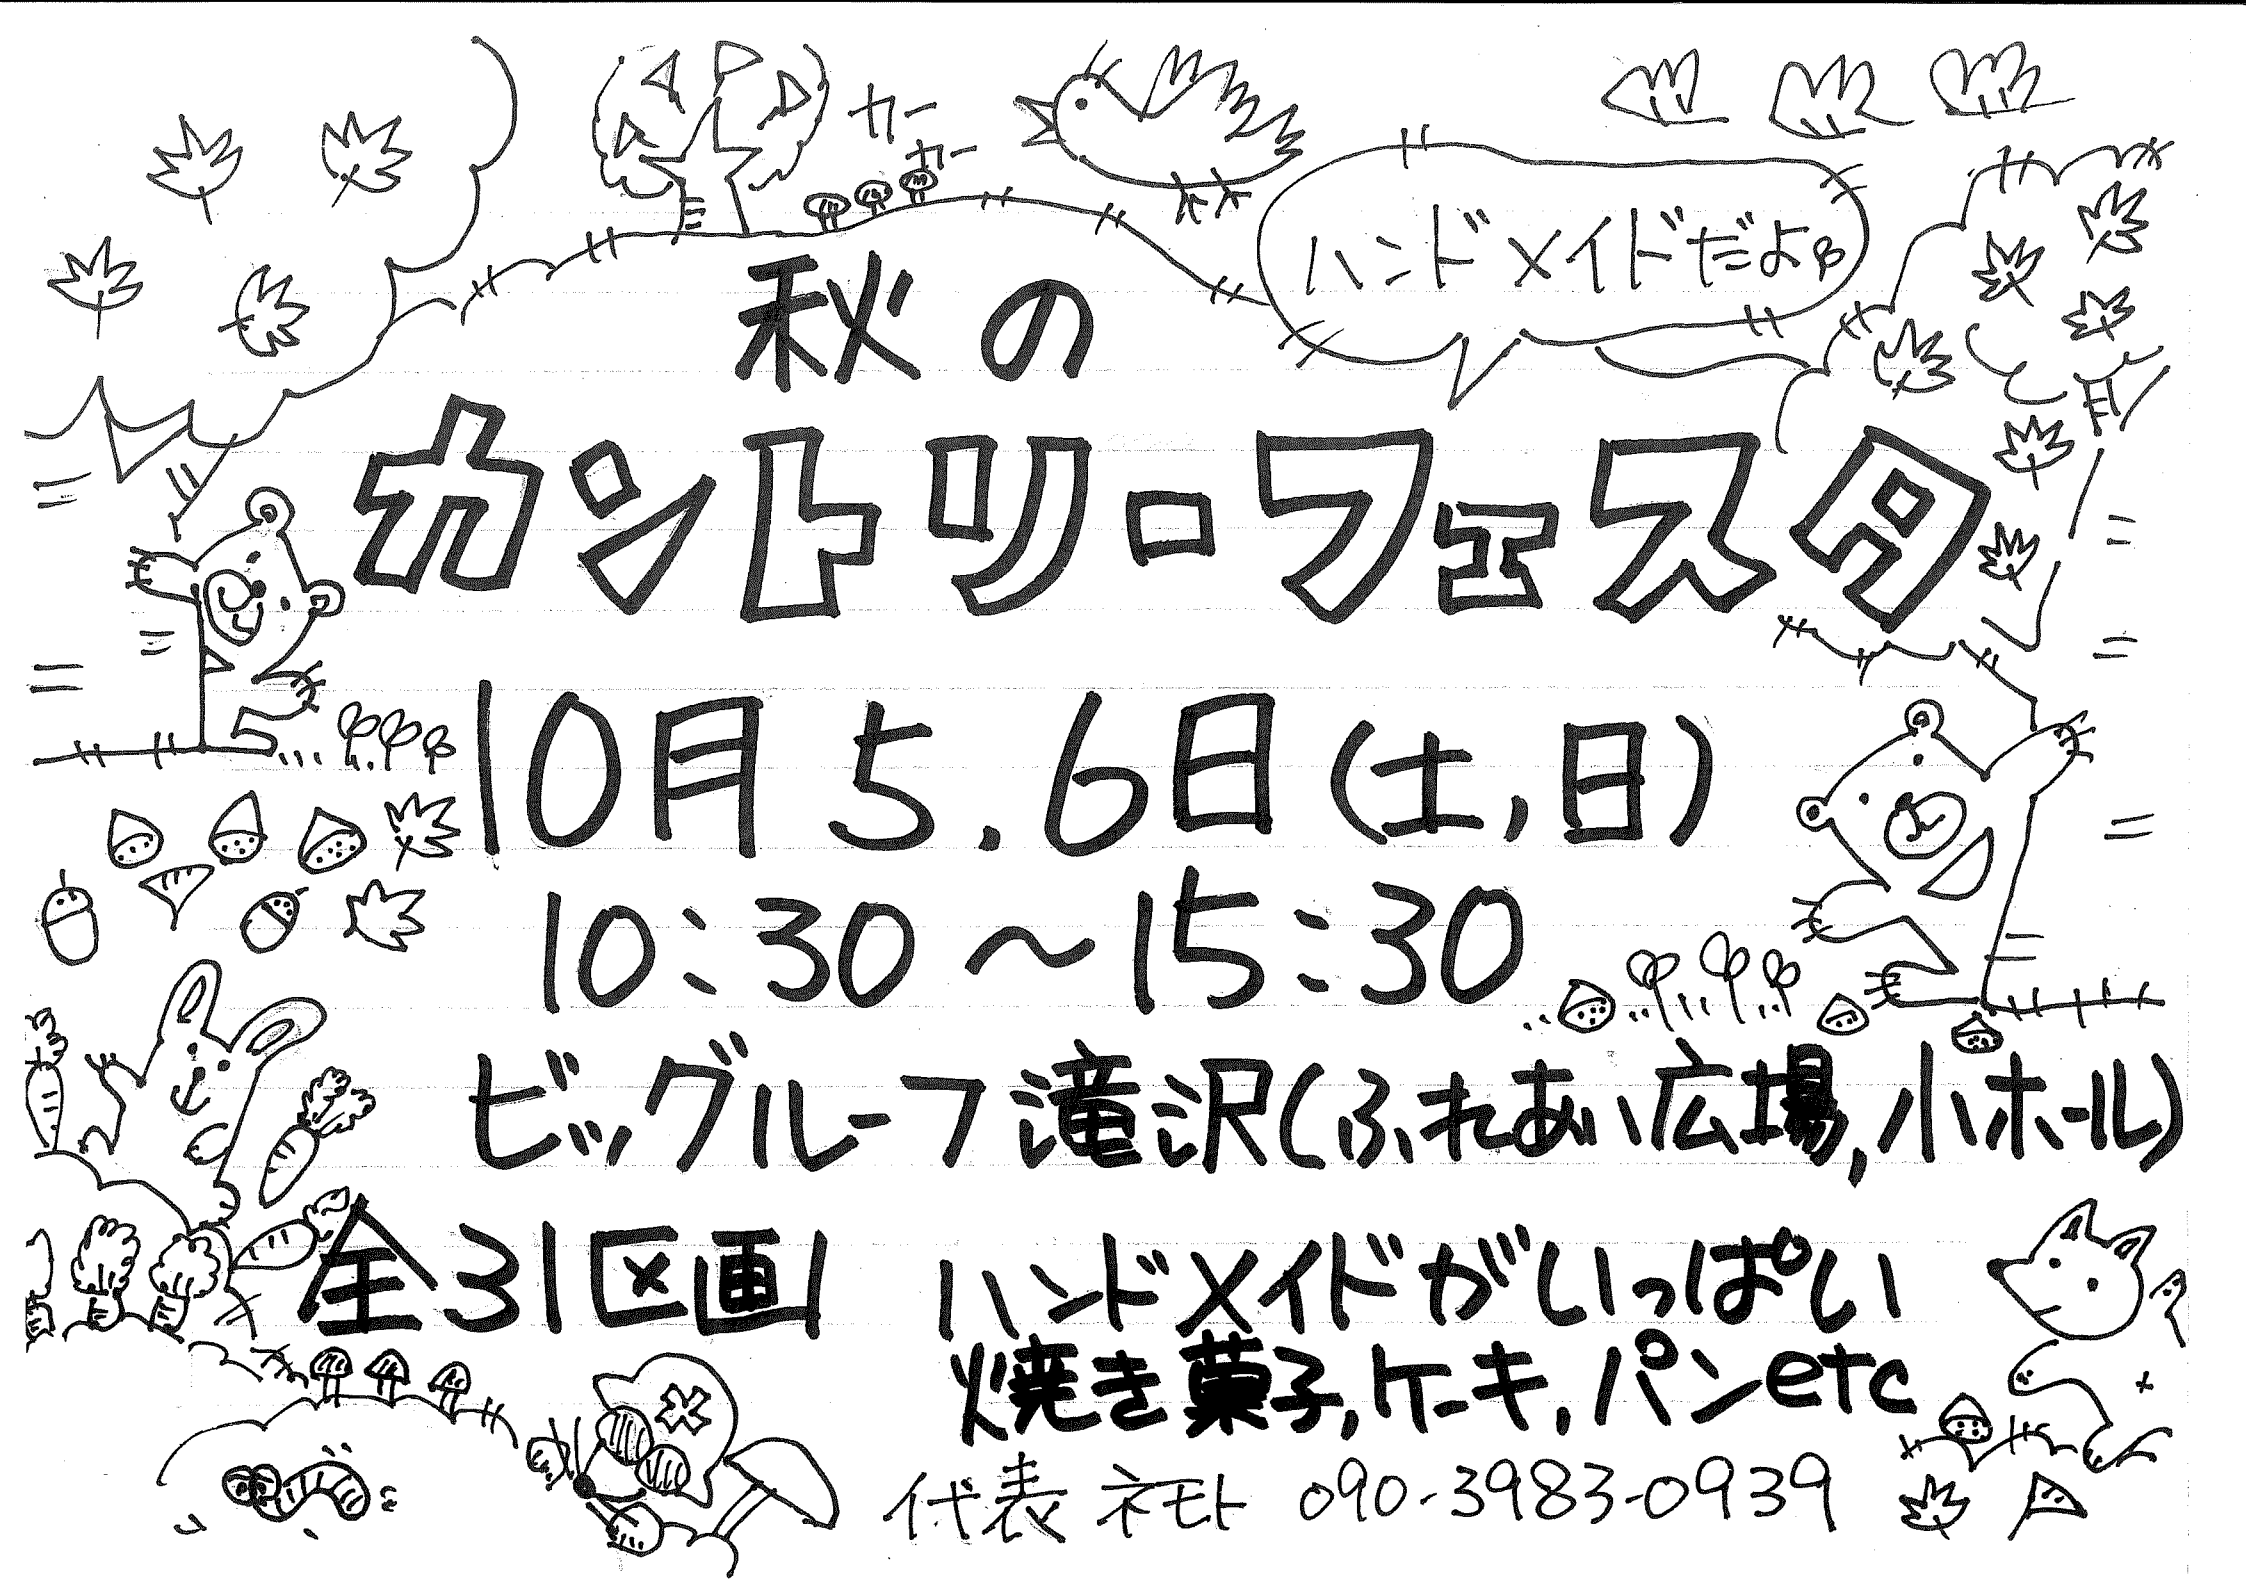 カー
カー
ハンドメイドだよ
秋の
カントリーフェスタ
10月5.6日(土,日)
10:30～15:30
ビッグルーフ滝沢(ふれあい広場,小ホール)
全31区画
ハンドメイドがいっぱい
焼き菓子,ケーキ,パンetc
代表 ネモト 090-3983-0939